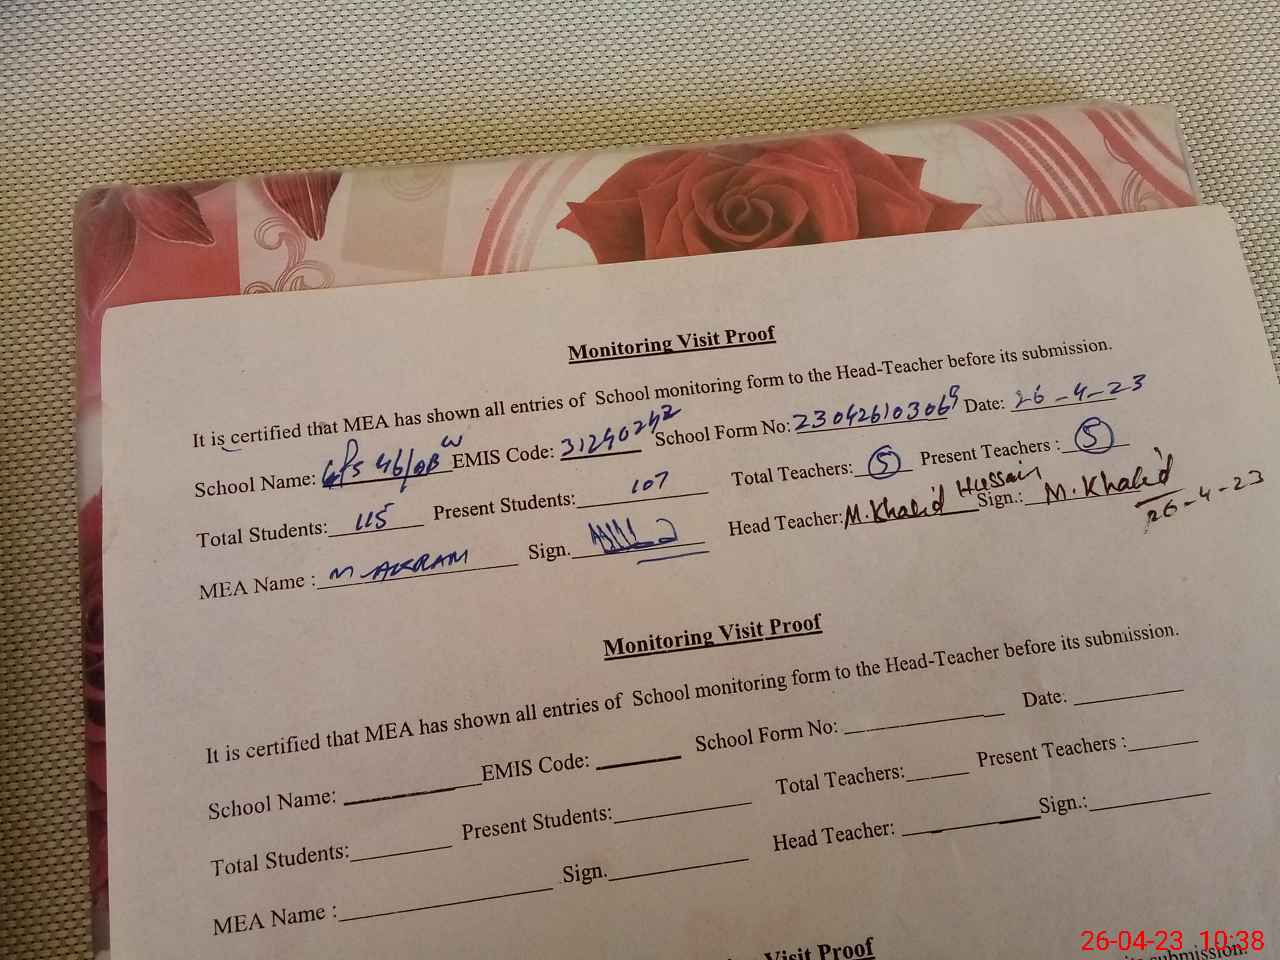 Monitoring Visit Proof
It is certified that MEA has shown all entries of School monitoring form to the Head-Teacher before its submission.
School Name: GPS 46/DB W EMIS Code: 31240242 School Form No: 230426103069 Date: 26-4-23
Total Students: 115 Present Students: 107 Total Teachers: 5 Present Teachers : 5
MEA Name : M-AKRAM Sign. Head Teacher: M.Khalid Hussain Sign.: M.Khalid
26-4-23
Monitoring Visit Proof
It is certified that MEA has shown all entries of School monitoring form to the Head-Teacher before its submission.
School Name: EMIS Code: School Form No: Date:
Total Students: Present Students: Total Teachers: Present Teachers :
MEA Name : Sign. Head Teacher: Sign.:
Visit Proof
its submission.
26-04-23 10:38